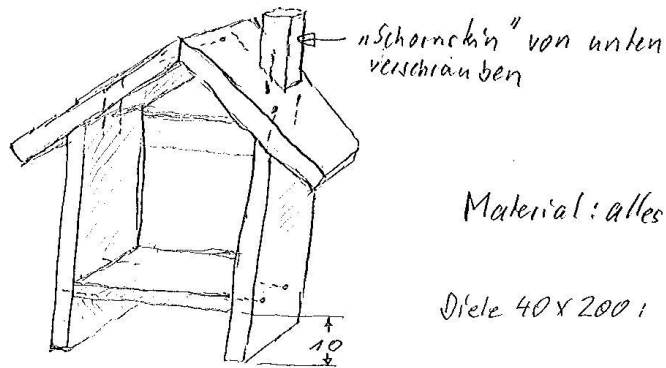 „Schornstein" von unten
verschrauben
Material: alles
Diele 40 x 200
10